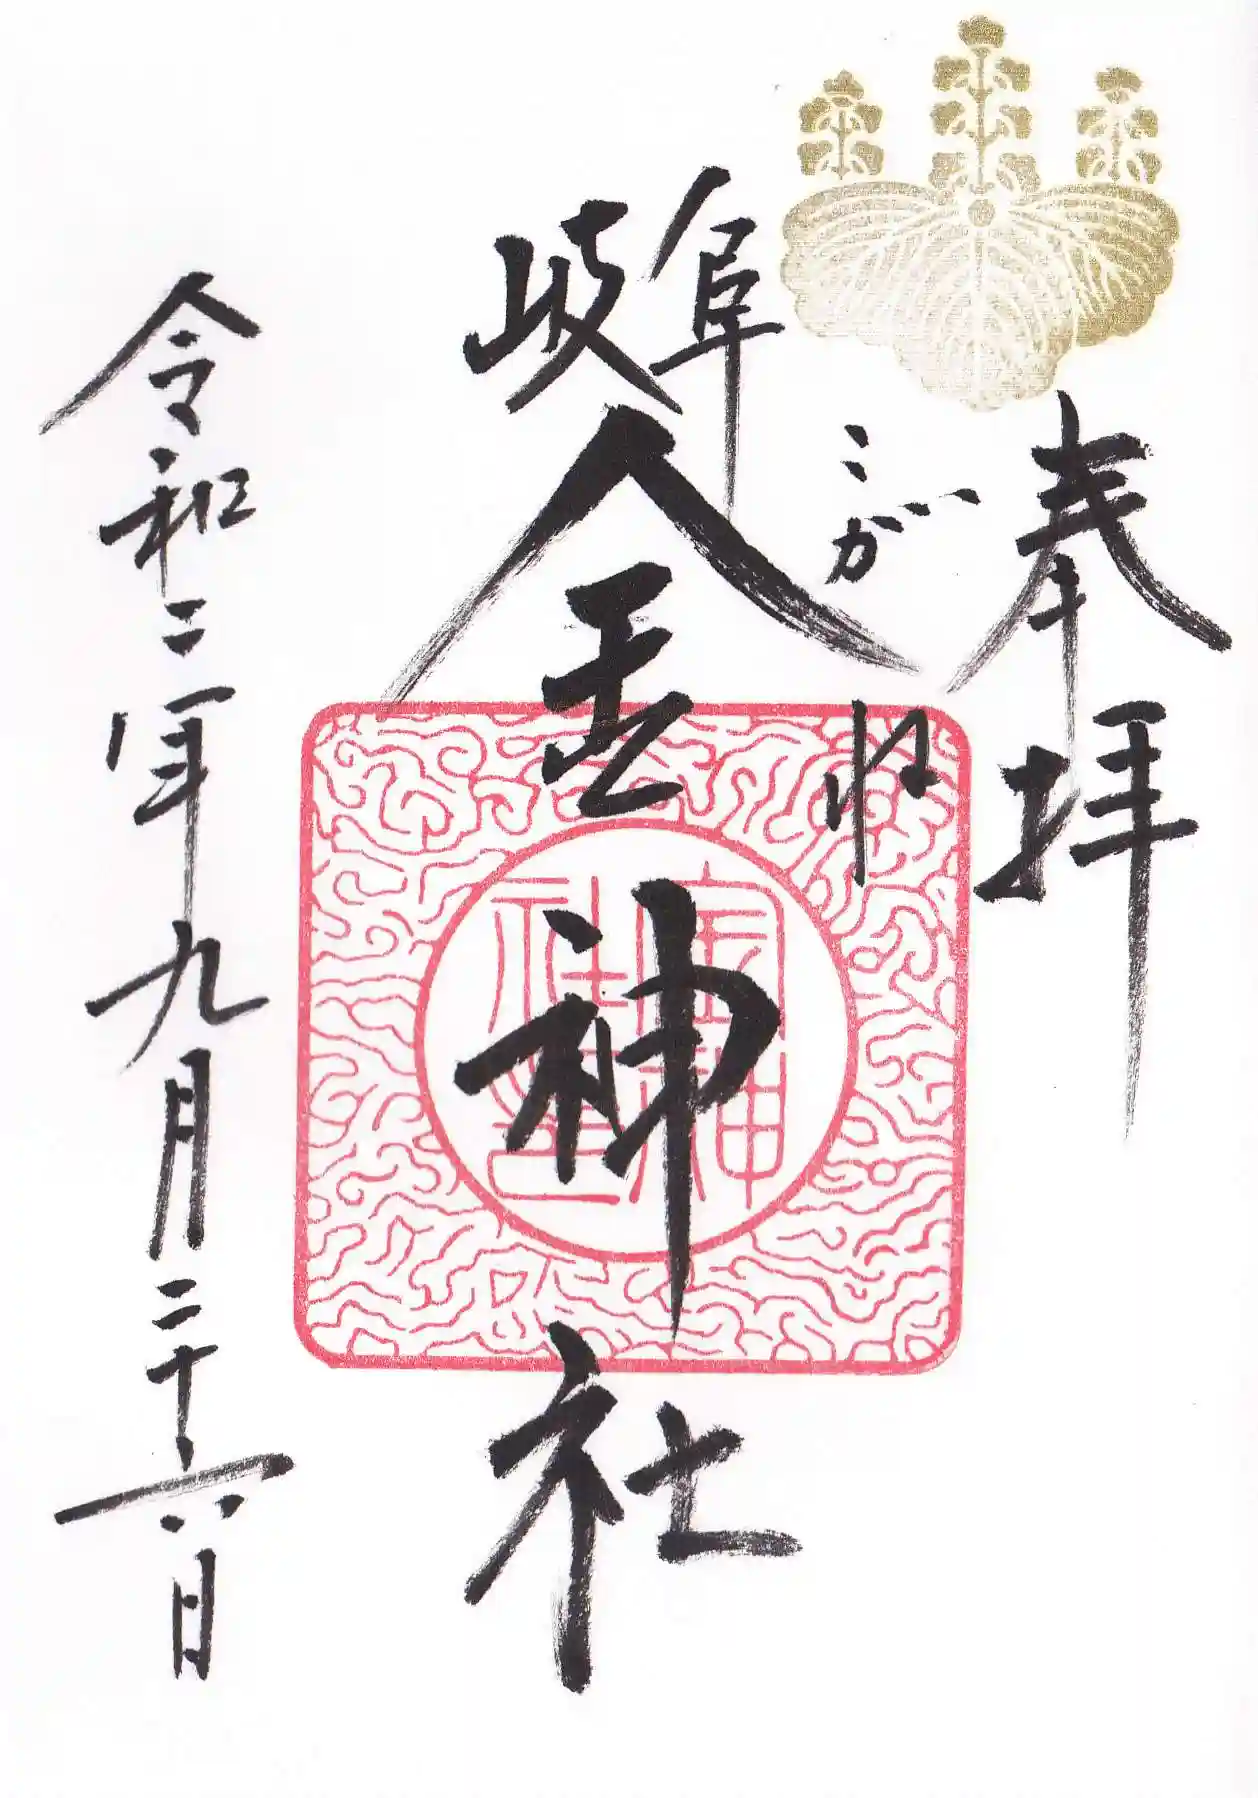 奉拝
こがね
岐阜
金神社
金神社印
令和二年九月二十六日